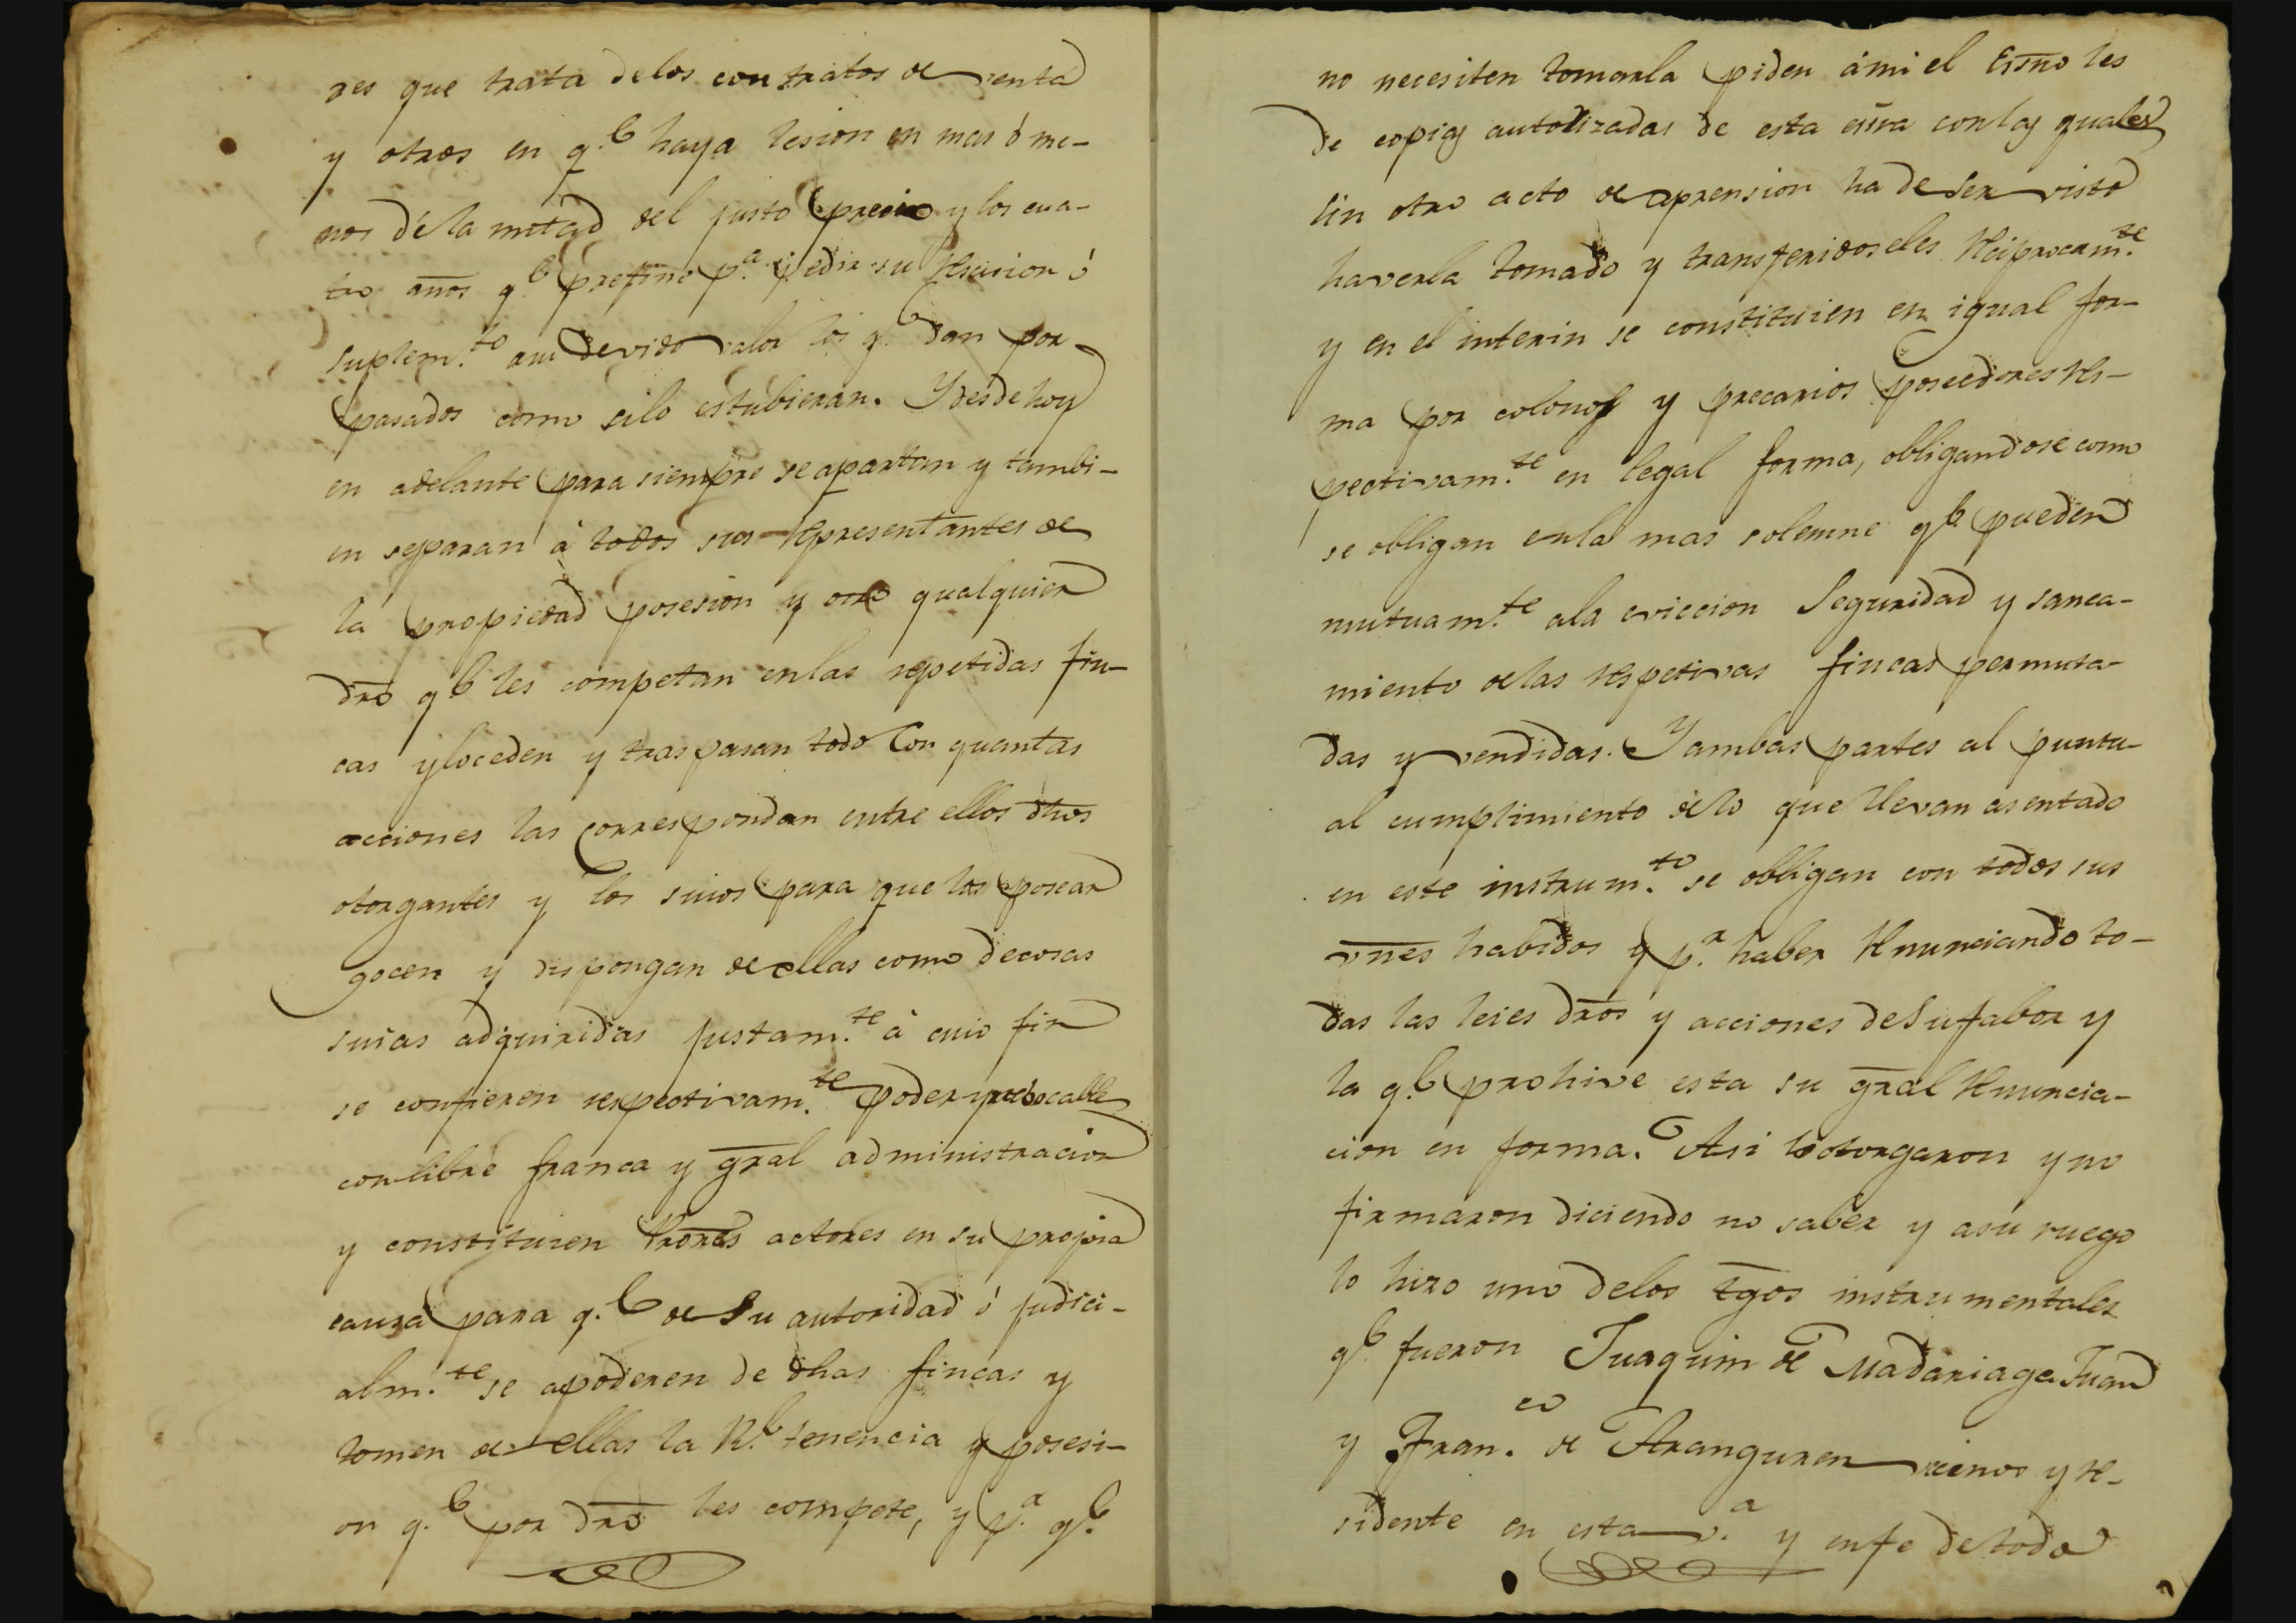 res que trata delos contratos de venta
y otros en q.e haya lesion en mas ó me-
nos de la mitad del justo precio y los cua-
tro años q.e prefine p.a pedir su recision ó
suplem.to a su devido valor los q.e dan por
pasados como silo estubieran. Y desde hoy
en adelante para siempre se apartan y tambi-
en separan à todos sus representantes de
la propiedad posesion y otro qualquier
dro q.e les competan en las repetidas fin-
cas y lo ceden y traspasan todo Con quantas
acciones las correspondan entre ellos dhos
otorgantes y los suios para que las posean
gocen y dispongan de ellas como de cosas
suias adquiridas justam.te à cuio fin
se confieren respectivam.te poder irrebocable
con libre franca y gral administracion
y constituien Prores actores en su propia
causa para q.e de Su autoridad ó judici-
alm.te se apoderen de dhas fincas y
tomen de ellas la R.l tenencia y posesi-
on q.e por dro les compete, y p.a q.e
no necesiten tomarla piden á mi el Essno les
de copias autorizadas de esta essra con las quales
sin otro acto de aprension ha de Ser visto
haverla tomado y transferidoseles reciprocam.te
y en el interin se constituien en igual for-
ma por colonos y precarios poseedores res-
pectivam.te en legal forma, obligandose como
se obligan en la mas solemne q.e pueden
mutuam.te ala eviccion Seguridad y sanea-
miento de las respetivas fincas permuta-
das y vendidas. Y ambas partes al puntu-
al cumplimiento de lo que llevan asentado
en este instrum.to se obligan con todos sus
vnes habidos y p.r haber renunciando to-
das las leies dros y acciones de Su fabor y
la q.e prohive esta su gral renuncia-
cion en forma. Asi lo otorgaron y no
firmaron diciendo no saber y asu ruego
lo hizo uno delos tgos instrumentales
q.e fueron Juaquin de Madariaga Juan
y Fran.co de Aranguren vecinos y re-
sidente en esta v.a y en fe de todo